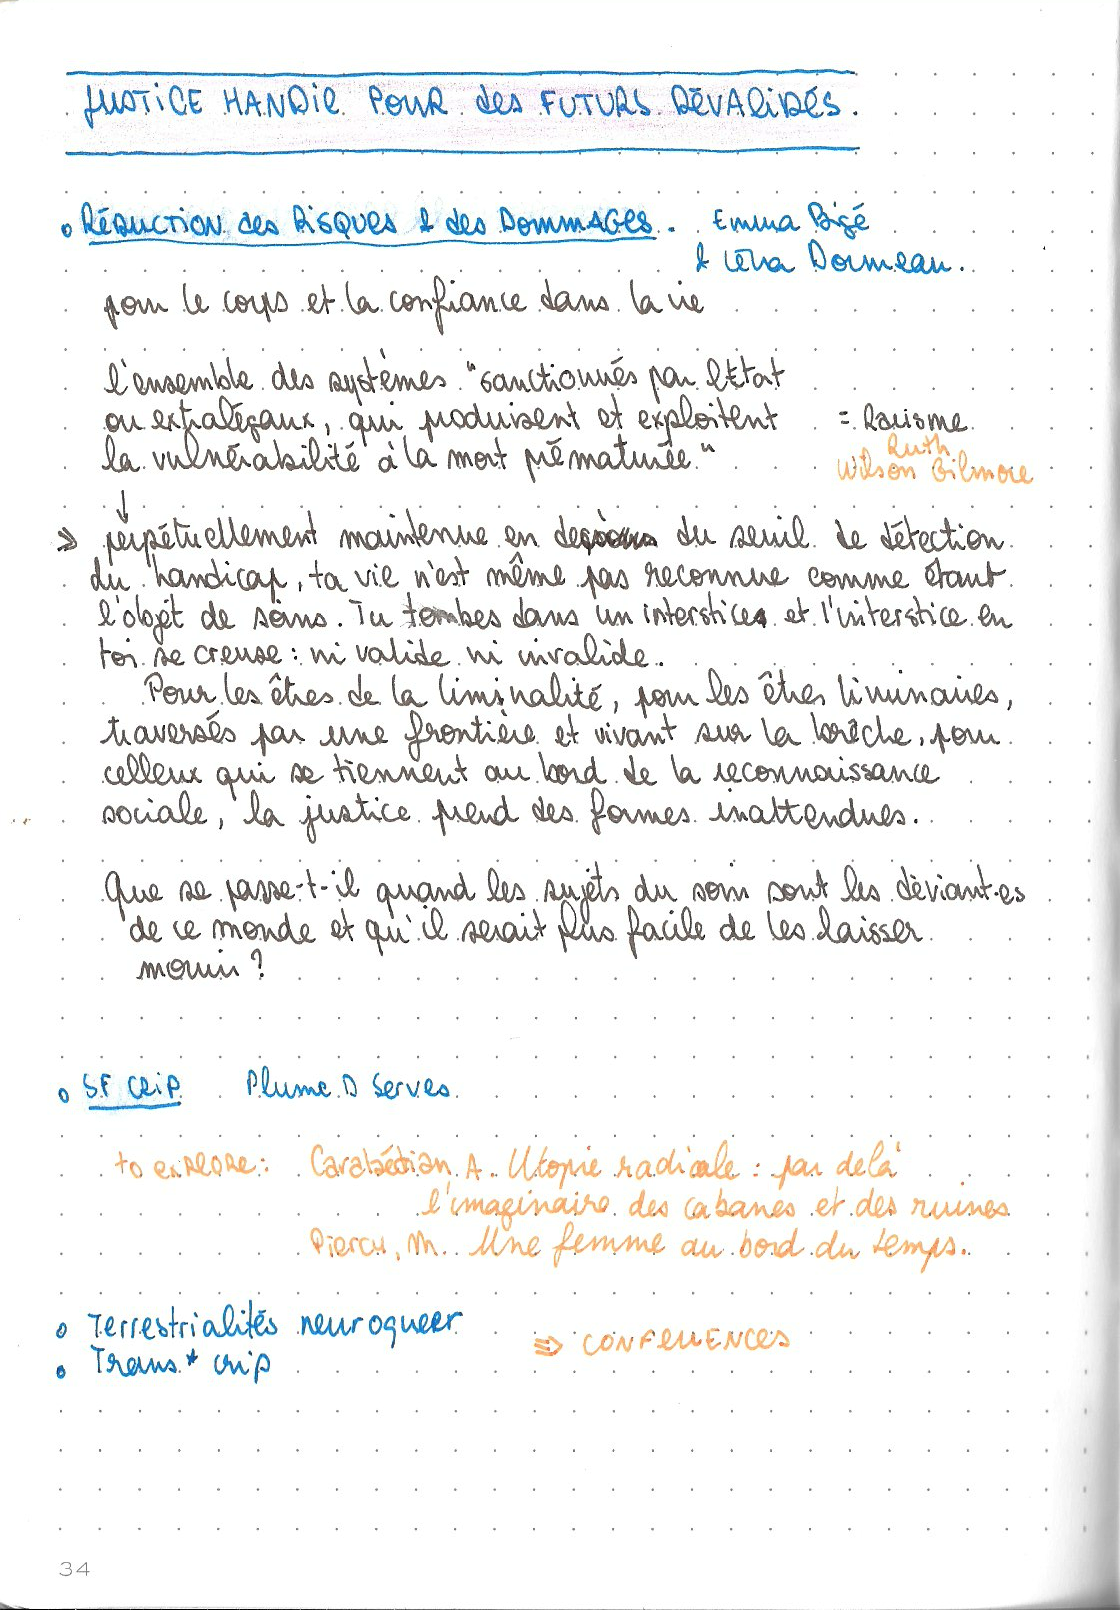 JUSTICE HANDIE POUR des FUTURS DÉVALIDÉS.
RÉDUCTION des RISQUES & des DOMMAGES. Emma Bigé
& Léna Dormeau.
pour le corps et la confiance dans la vie
l'ensemble des systèmes "sanctionnés par l'Etat
ou extralégaux, qui produisent et exploitent = Racisme
la vulnérabilité à la mort prématurée" Ruth
Wilson Gilmore
↓
⇒ perpétuellement maintenue en du seuil de détection
du handicap, ta vie n'est même pas reconnue comme étant
l'objet de soins. Tu tombes dans un interstice et l'interstice en
toi se creuse : ni valide ni invalide.
Pour les êtres de la liminalité, pour les êtres liminaires,
traversés par une frontière et vivant sur la brèche, pour
celleux qui se tiennent au bord de la reconnaissance
sociale, la justice prend des formes inattendues.
Que se passe-t-il quand les sujets du soin sont les déviant·es
de ce monde et qu'il serait plus facile de les laisser
mourir ?
SF CRIP Plume D Serves
to exPLORE : Carabédian, A. Utopie radicale : par delà
l'imaginaire des cabanes et des ruines
Piercy, M. Une femme au bord du temps.
Terrestrialités neuroqueer
⇒ CONFLUENCES
Trans* crip
34